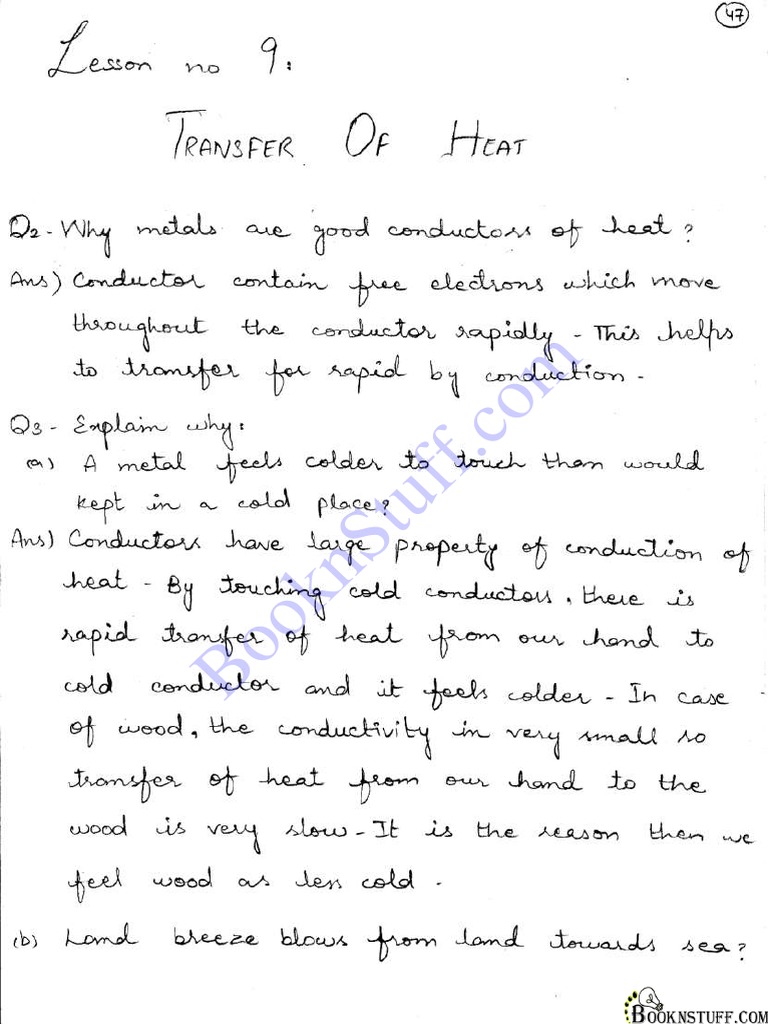 47
Lesson no 9:
TRANSFER OF HEAT
Q2- Why metals are good conductors of heat?
Ans) Conductor contain free electrons which move
throughout the conductor rapidly - This helps
to transfer for rapid by conduction -
Q3- Explain why:
(a) A metal feels colder to touch than would
kept in a cold place?
Ans) Conductors have large property of conduction of
heat - By touching cold conductors, there is
rapid transfer of heat from our hand to
cold conductor and it feels colder - In case
of wood, the conductivity in very small so
transfer of heat from our hand to the
wood is very slow - It is the reason then we
feel wood as less cold -
(b) Land breeze blows from land towards sea?
BooknStuff.com
BOOKNSTUFF.COM